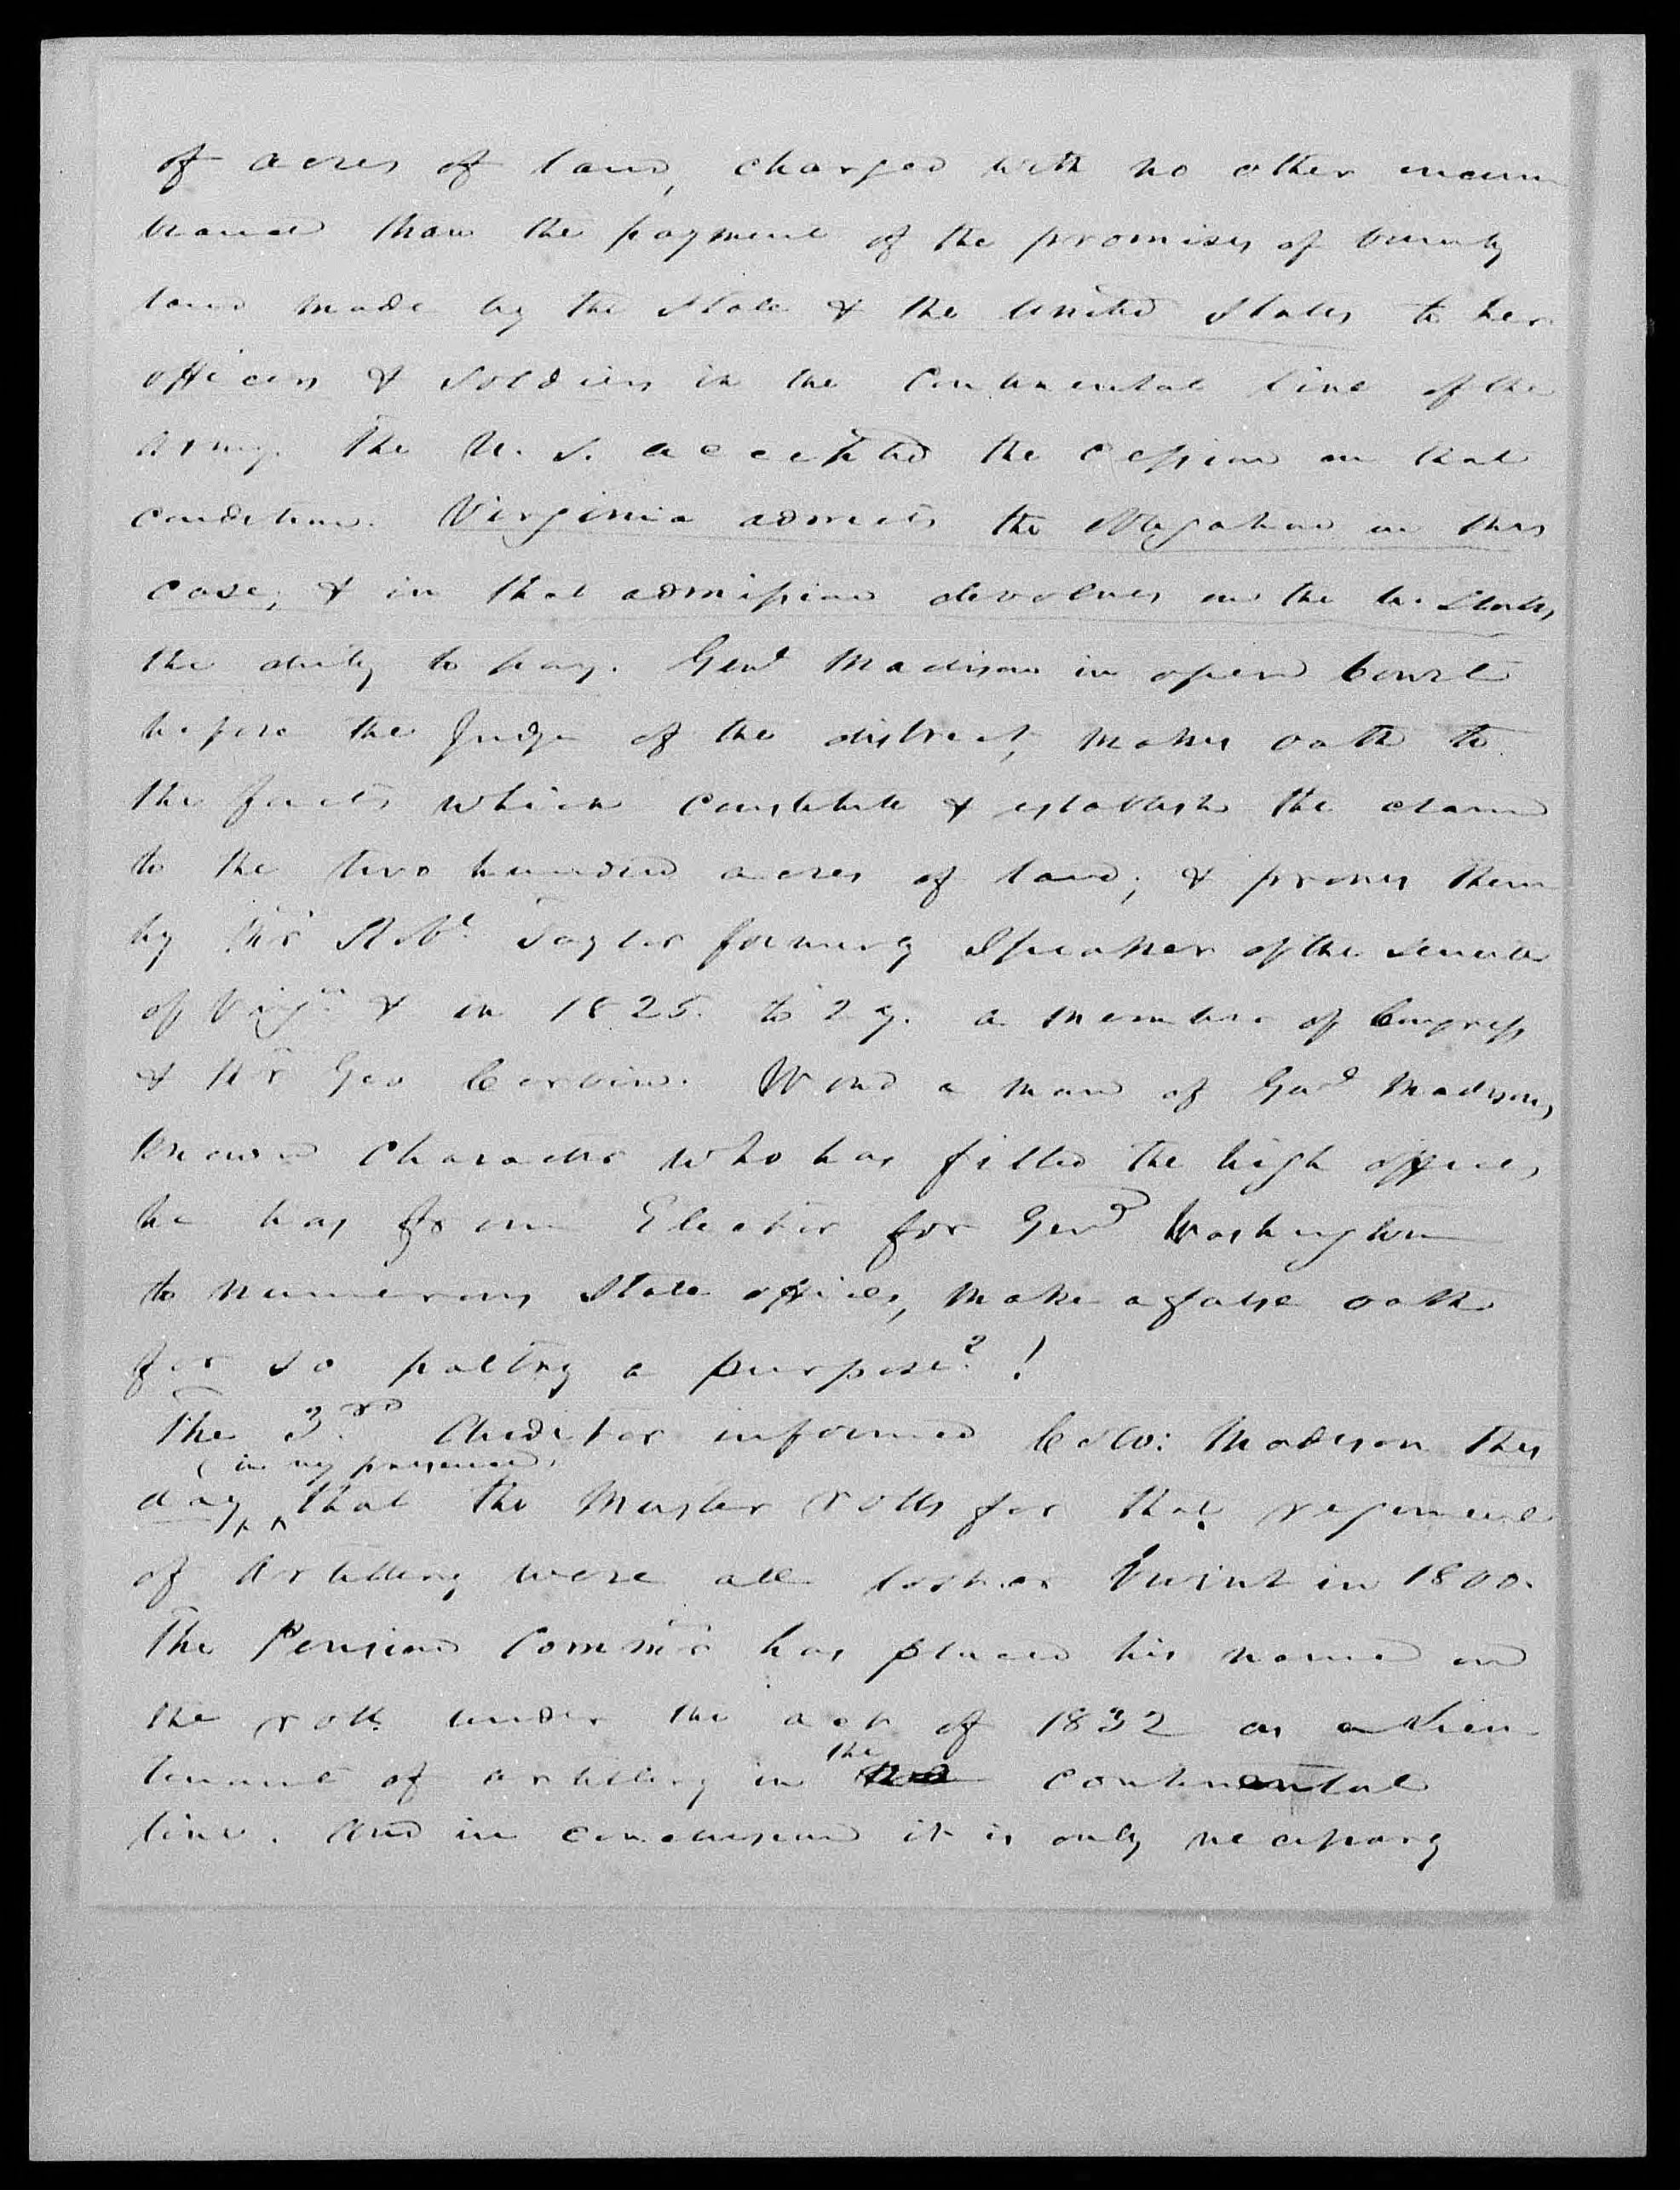 of acres of land, charged with no other incum
brance than the payment of the promises of bounty
land made by the State & the United States to her
officers & soldiers in the Continental line of the
army. The U. S. accepted the cession on that
condition. Virginia admits the obligation in this
case, & in that admission devolves on the U. States,
the duty to pay. Genl Madison in open Court
before the Judge of the district, makes oath to
the facts which constitute & establish the claim
to the two hundred acres of land; & proves them
by Mr Robt. Taylor formerly Speaker of the Senate
of Virga & in 1825. to 27. a member of Congress
& Mr Geo Corbin. Would a man of Genl Madisons
known character who has filled the high offices
he has from Elector for Genl Washington
to numerous State offices, make a false oath
for so paltry a purpose? !
The 3rd. Auditor informed Colo: Madison this
(in my presence)
day that the Muster rolls for that regiment
of Artillery were all lost or burnt in 1800.
The Pension Commr has placed his name on
the roll under the act of 1832 as a Lieu
the
tenant of artillery in continental
line. And in conclusion it is only necessary